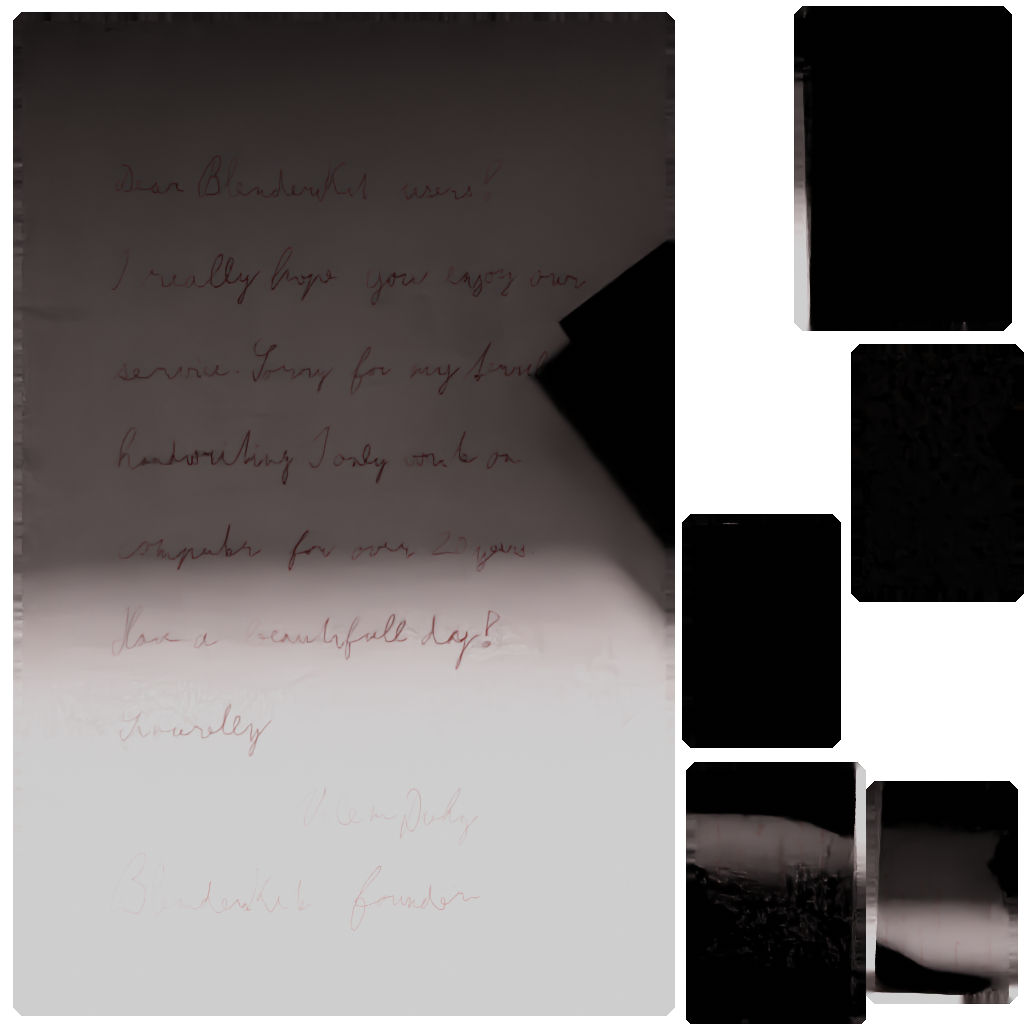 Dear BlenderKit users!
I really hope you enjoy our
service. Sorry for my
handwriting I only work on
computer for over 20 years.
Have a beautifull day!
Sincerelly
Duhy
BlenderKit founder